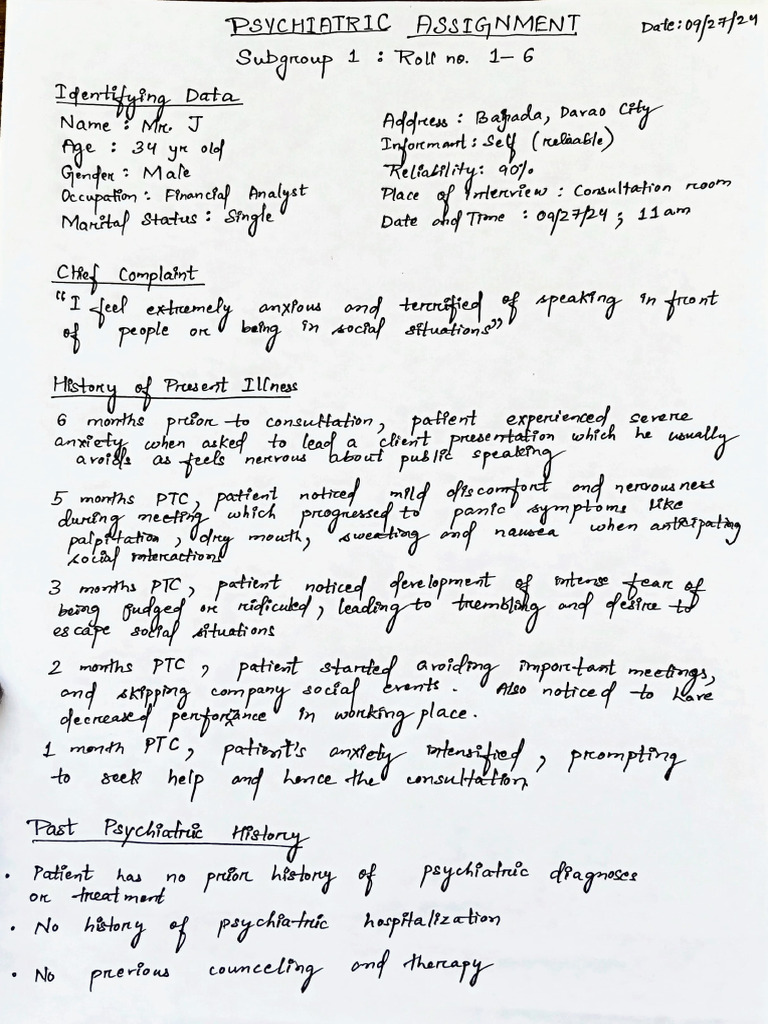 PSYCHIATRIC ASSIGNMENT
Date: 09/27/24
Subgroup 1 : Roll no. 1-6
Identifying Data
Name : Mr. J
Age : 34 yr old
Gender : Male
Occupation : Financial Analyst
Marital Status : Single
Address : Bajada, Davao City
Informant : Self (reliable)
Reliability : 90%
Place of Interview : Consultation room
Date and Time : 09/27/24 ; 11 am
Chief Complaint
"I feel extremely anxious and terrified of speaking in front
of people or being in social situations"
History of Present Illness
6 months prior to consultation, patient experienced severe
anxiety when asked to lead a client presentation which he usually
avoids as feels nervous about public speaking
5 months PTC, patient noticed mild discomfort and nervousness
during meeting which progressed to panic symptoms like
palpitation, dry mouth, sweating and nausea when anticipating
social interactions
3 months PTC, patient noticed development of intense fear of
being judged or ridiculed, leading to trembling and desire to
escape social situations
2 months PTC, patient started avoiding important meetings,
and skipping company social events. Also noticed to have
decreased performance in working place.
1 month PTC, patient's anxiety intensified, prompting
to seek help and hence the consultation
Past Psychiatric History
• Patient has no prior history of psychiatric diagnoses
or treatment
• No history of psychiatric hospitalization
• No previous counceling and therapy